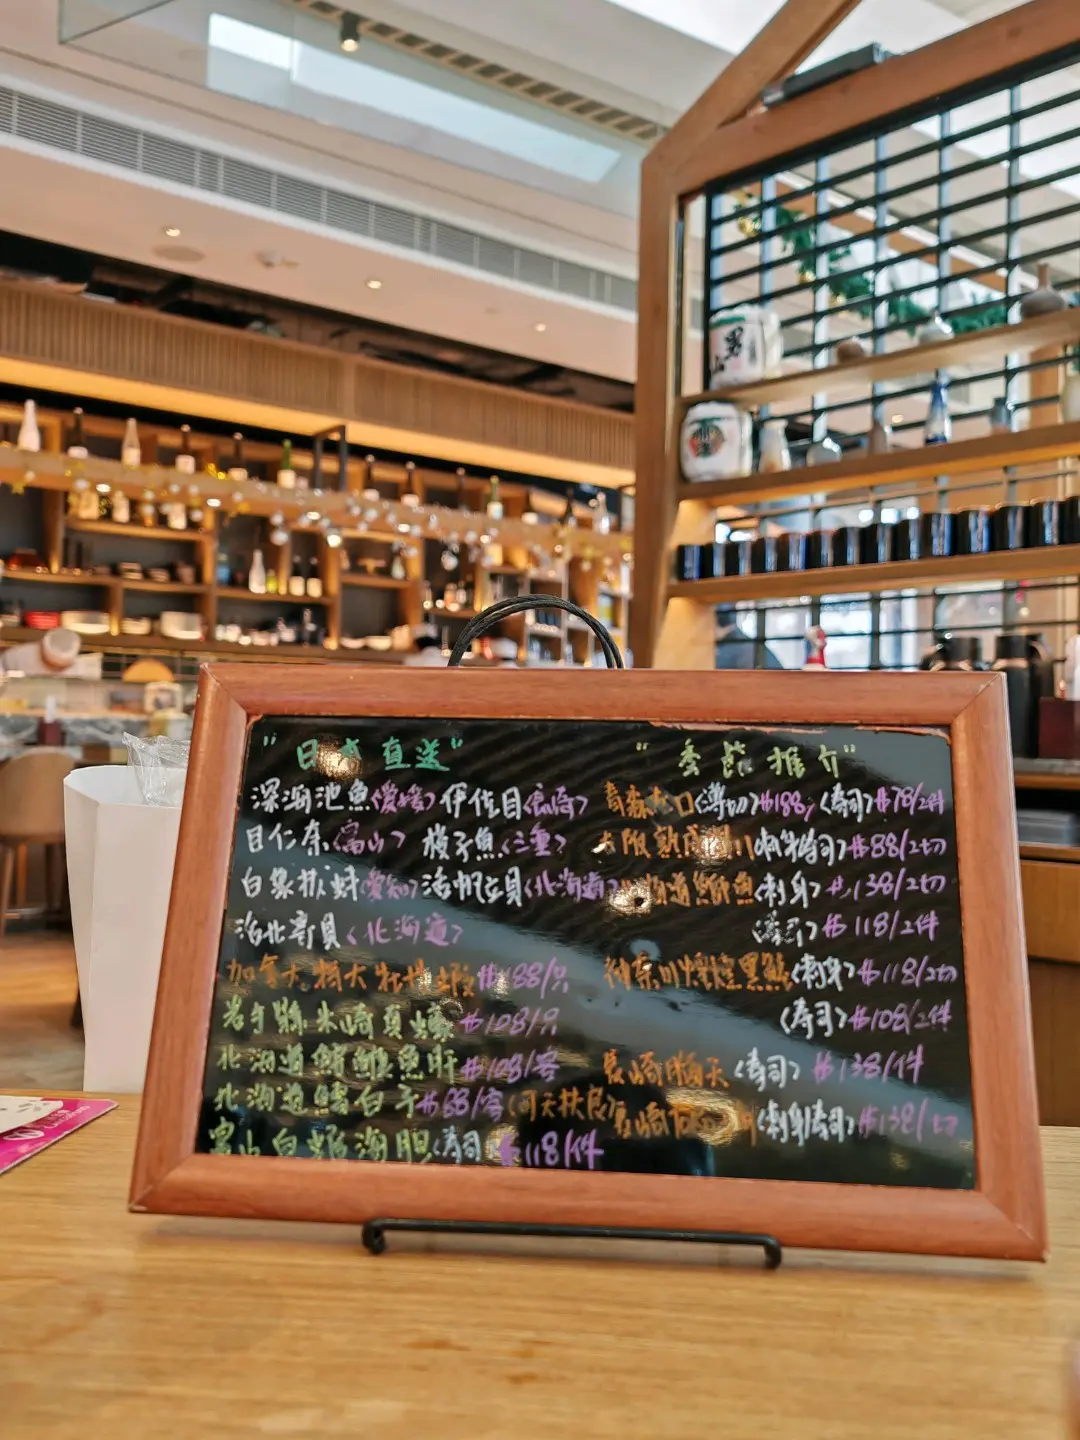 "日本直送"
深海池魚(愛媛) 伊佐目(長崎)
目仁奈(富山) 梭子魚(三重)
白象拔蚌(愛知) 活帆立貝(北海道)
活北寄貝(北海道)
加拿大 特大牡丹蝦 $188/只
岩手縣 米崎真蠔 $128/只
北海道鮟鱇魚肝 $128/客
北海道鱈白子 $88/客 (可天扶良)
富山白蝦海胆(寿司) $118/件
"季節推介"
青森大 口(薄切) $188, (寿司) $78/2件
(刺身寿司) $88/2切
海道 魚(刺身) $138/2切
(寿司) $118/2件
神奈川 黑 (刺身) $118/2切
(寿司) $108/2件
長崎 天 (寿司) $138/件
長崎 (刺身寿司) $138/切
男山